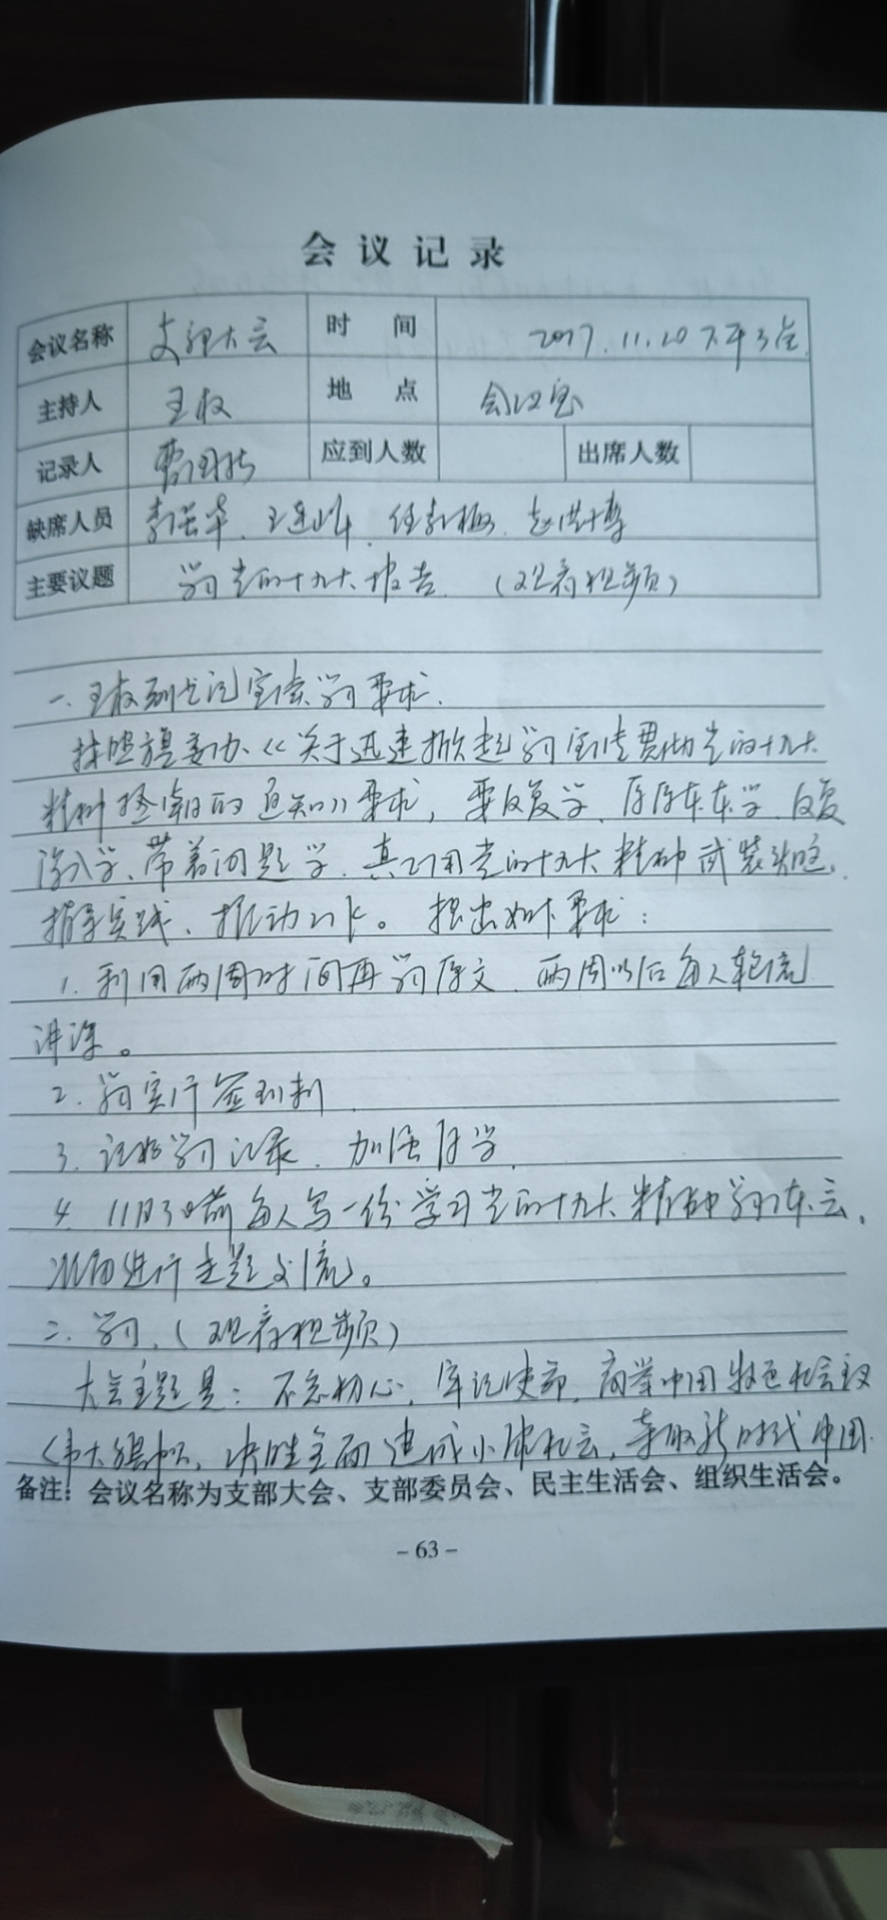 会议记录
会议名称 支部大会 时间 2017.11.20 下午3点
主持人 王权 地点 会议室
记录人 应到人数 出席人数
缺席人员
主要议题 学习党的十九大报告。(观看视频)
一、王权副书记宣读学习要求。
按照旗委办《关于迅速掀起学习宣传贯彻党的十九大
精神热潮的通知》要求,要反复学、原原本本学、反复
深入学、带着问题学,真正用党的十九大精神武装头脑、
指导实践、推动工作。提出如下要求:
1. 利用两周时间再学习原文,两周以后每人轮流
讲课。
2. 学习实行签到制。
3. 记好学习记录,加强自学。
4. 11月30日前每人写一份学习党的十九大精神学习体会,
进行主题交流。
二、学习,(观看视频)
大会主题是:不忘初心,牢记使命,高举中国特色社会主义
伟大旗帜,决胜全面建成小康社会,夺取新时代中国
备注:会议名称为支部大会、支部委员会、民主生活会、组织生活会。
- 63 -